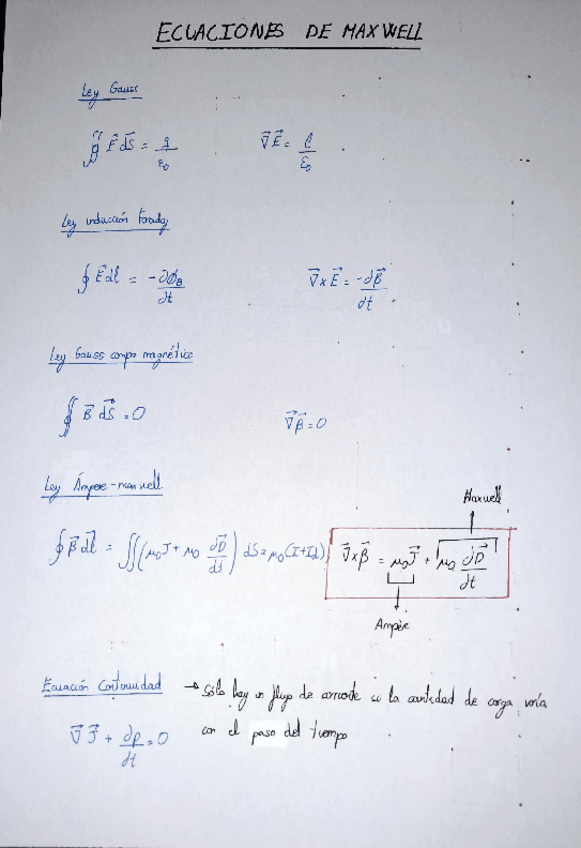 ECUACIONES DE MAXWELL
Ley Gauss
∯ E⃗ dS⃗ = q/ε₀    ∇⃗E⃗ = ρ/ε₀
Ley inducción Faraday
∮ E⃗ dl⃗ = -∂ϕ_B/∂t    ∇⃗ x E⃗ = -∂B⃗/∂t
Ley Gauss campo magnético
∯ B⃗ dS⃗ = 0    ∇⃗B⃗ = 0
Ley Ámpere-maxwell
Maxwell
∮ B⃗ dl⃗ = ∬(μ₀J + μ₀ ∂D⃗/dt) dS = μ₀(I+Id)    ∇⃗ x B⃗ = μ₀J⃗ + μ₀ ∂D⃗/∂t
Ampère
Ecuación Continuidad → Sólo hay un flujo de corriente si la cantidad de carga varía
∇⃗ J⃗ + ∂ρ/∂t = 0    con el paso del tiempo